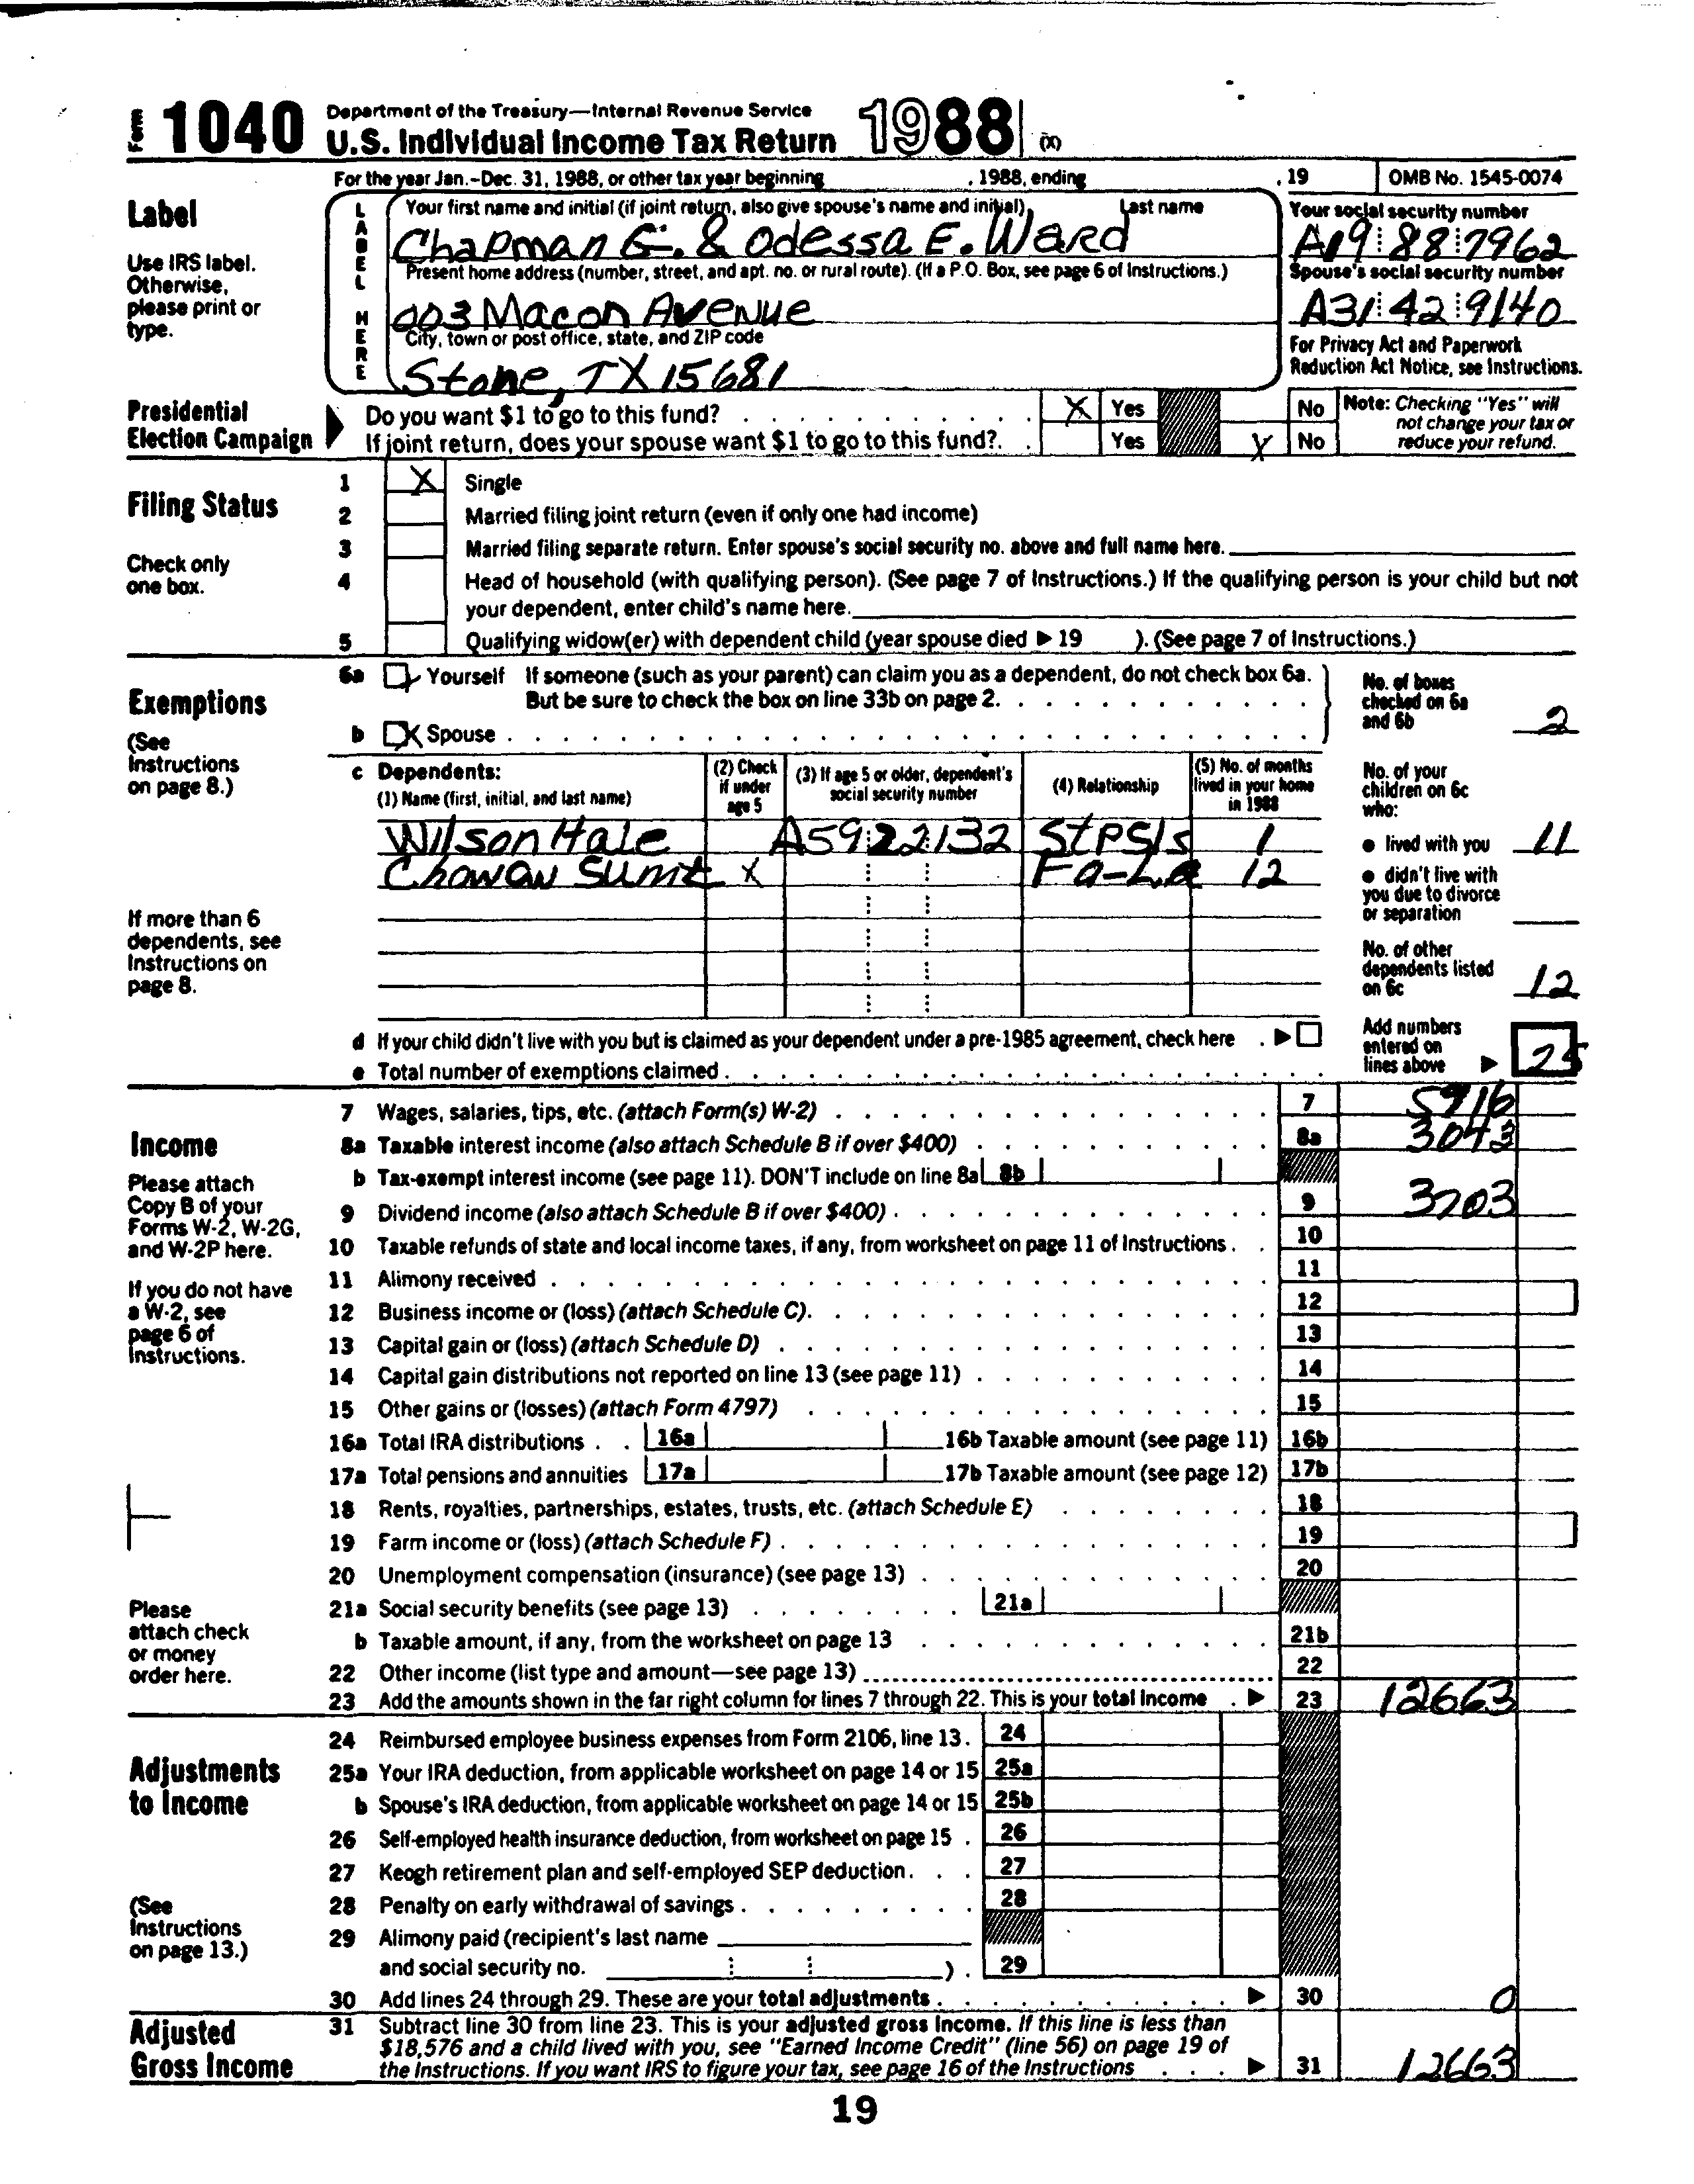 Form 1040 Department of the Treasury—Internal Revenue Service
U.S. Individual Income Tax Return 1988 (X)
For the year Jan.-Dec. 31, 1988, or other tax year beginning , 1988, ending , 19 OMB No. 1545-0074
Label
Use IRS label.
Otherwise,
please print or
type.
LABEL HERE
Your first name and initial (if joint return, also give spouse's name and initial) Last name
Chapman G. & Odessa E. Ward
Your social security number
A19 88 7962
Present home address (number, street, and apt. no. or rural route). (If a P.O. Box, see page 6 of Instructions.)
003 Macon Avenue
Spouse's social security number
A31 42 9140
City, town or post office, state, and ZIP code
Stone, TX 15681
For Privacy Act and Paperwork
Reduction Act Notice, see Instructions.
Presidential
Election Campaign
Do you want $1 to go to this fund? X Yes No
If joint return, does your spouse want $1 to go to this fund? Yes X No
Note: Checking "Yes" will
not change your tax or
reduce your refund.
Filing Status
Check only
one box.
1 X Single
2 Married filing joint return (even if only one had income)
3 Married filing separate return. Enter spouse's social security no. above and full name here.
4 Head of household (with qualifying person). (See page 7 of Instructions.) If the qualifying person is your child but not
your dependent, enter child's name here.
5 Qualifying widow(er) with dependent child (year spouse died ▶ 19 ). (See page 7 of Instructions.)
Exemptions
(See
Instructions
on page 8.)
6a Yourself If someone (such as your parent) can claim you as a dependent, do not check box 6a.
But be sure to check the box on line 33b on page 2.
b X Spouse
No. of boxes
checked on 6a
and 6b 2
c Dependents:
(1) Name (first, initial, and last name)
(2) Check
if under
age 5
(3) If age 5 or older, dependent's
social security number
(4) Relationship
(5) No. of months
lived in your home
in 1988
Wilson Hale A59 22 132 StPSIs 1
Chowan Sumt X Fa-La 12
No. of your
children on 6c
who:
● lived with you 11
● didn't live with
you due to divorce
or separation
No. of other
dependents listed
on 6c 12
If more than 6
dependents, see
Instructions on
page 8.
d If your child didn't live with you but is claimed as your dependent under a pre-1985 agreement, check here ▶
e Total number of exemptions claimed
Add numbers
entered on
lines above ▶ 25
Income
Please attach
Copy B of your
Forms W-2, W-2G,
and W-2P here.
If you do not have
a W-2, see
page 6 of
Instructions.
7 Wages, salaries, tips, etc. (attach Form(s) W-2) 7 5916
8a Taxable interest income (also attach Schedule B if over $400) 8a 3043
b Tax-exempt interest income (see page 11). DON'T include on line 8a 8b
9 Dividend income (also attach Schedule B if over $400) 9 3703
10 Taxable refunds of state and local income taxes, if any, from worksheet on page 11 of Instructions 10
11 Alimony received 11
12 Business income or (loss) (attach Schedule C) 12
13 Capital gain or (loss) (attach Schedule D) 13
14 Capital gain distributions not reported on line 13 (see page 11) 14
15 Other gains or (losses) (attach Form 4797) 15
16a Total IRA distributions 16a 16b Taxable amount (see page 11) 16b
17a Total pensions and annuities 17a 17b Taxable amount (see page 12) 17b
18 Rents, royalties, partnerships, estates, trusts, etc. (attach Schedule E) 18
19 Farm income or (loss) (attach Schedule F) 19
20 Unemployment compensation (insurance) (see page 13) 20
21a Social security benefits (see page 13) 21a
b Taxable amount, if any, from the worksheet on page 13 21b
22 Other income (list type and amount—see page 13) 22
23 Add the amounts shown in the far right column for lines 7 through 22. This is your total income ▶ 23 12663
Please
attach check
or money
order here.
Adjustments
to Income
(See
Instructions
on page 13.)
24 Reimbursed employee business expenses from Form 2106, line 13. 24
25a Your IRA deduction, from applicable worksheet on page 14 or 15 25a
b Spouse's IRA deduction, from applicable worksheet on page 14 or 15 25b
26 Self-employed health insurance deduction, from worksheet on page 15 26
27 Keogh retirement plan and self-employed SEP deduction 27
28 Penalty on early withdrawal of savings 28
29 Alimony paid (recipient's last name
and social security no. ) 29
30 Add lines 24 through 29. These are your total adjustments ▶ 30 0
Adjusted
Gross Income
31 Subtract line 30 from line 23. This is your adjusted gross income. If this line is less than
$18,576 and a child lived with you, see "Earned Income Credit" (line 56) on page 19 of
the Instructions. If you want IRS to figure your tax, see page 16 of the Instructions ▶ 31 12663
19